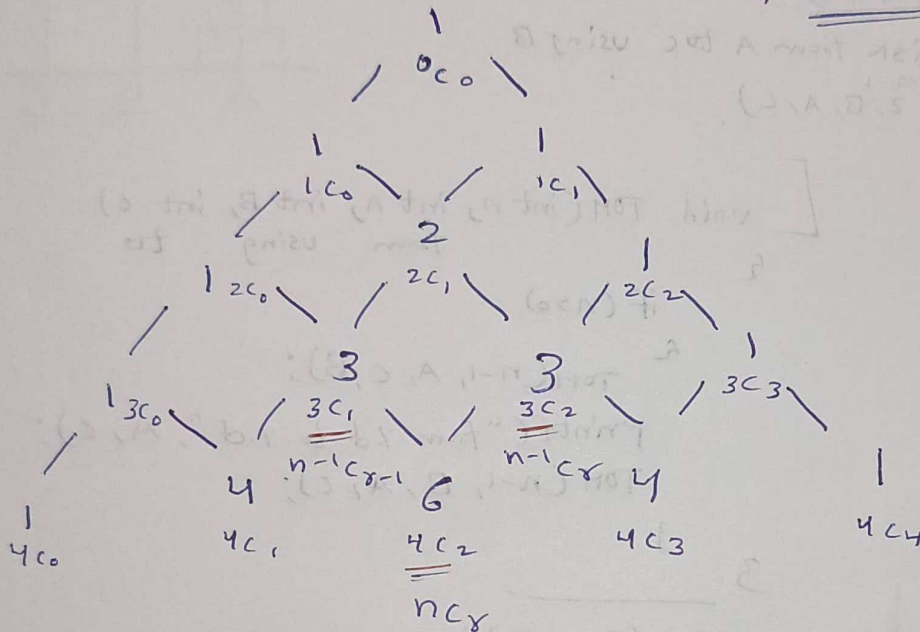 1
0C0
1 1
1C0 1C1
2
1 2C0 2C1 1 2C2
3 3 1
1 3C0 3C1 3C2 3C3
n-1Cr-1 n-1Cr
1 4 6 4 1
4C0 4C1 4C2 4C3 4C4
nCr